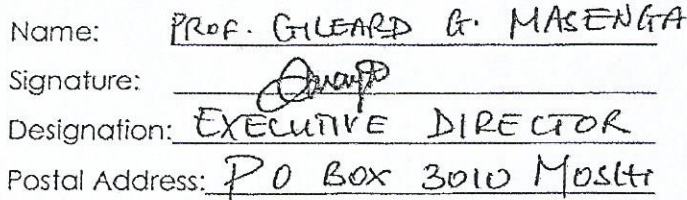 Name: PROF. GILEARD G. MASENGA
Signature:
Designation: EXECUTIVE DIRECTOR
Postal Address: P O BOX 3010 MOSHI